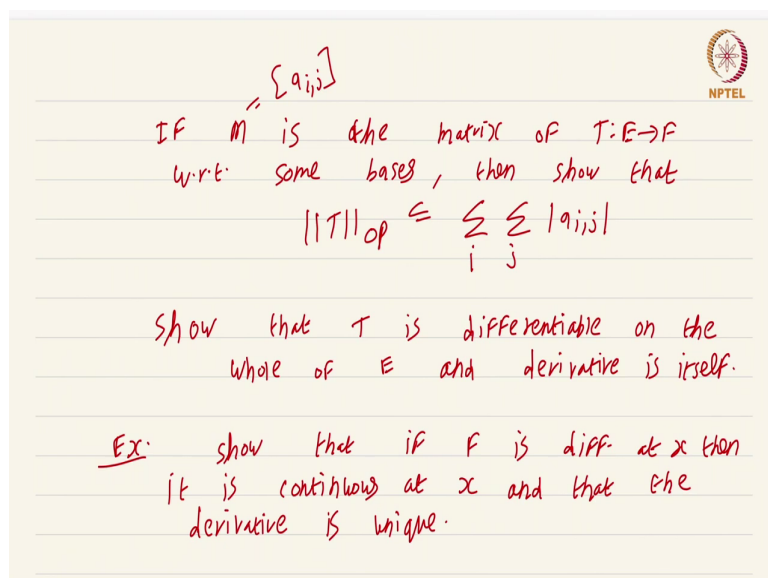 = [aᵢ,ⱼ]
NPTEL
IF M is the matrix of T: E→F
w.r.t. some bases, then show that
||T||op ≤ Σᵢ Σⱼ |aᵢ,ⱼ|
Show that T is differentiable on the
whole of E and derivative is itself.
Ex. show that if F is diff. at x then
it is continuous at x and that the
derivative is unique.